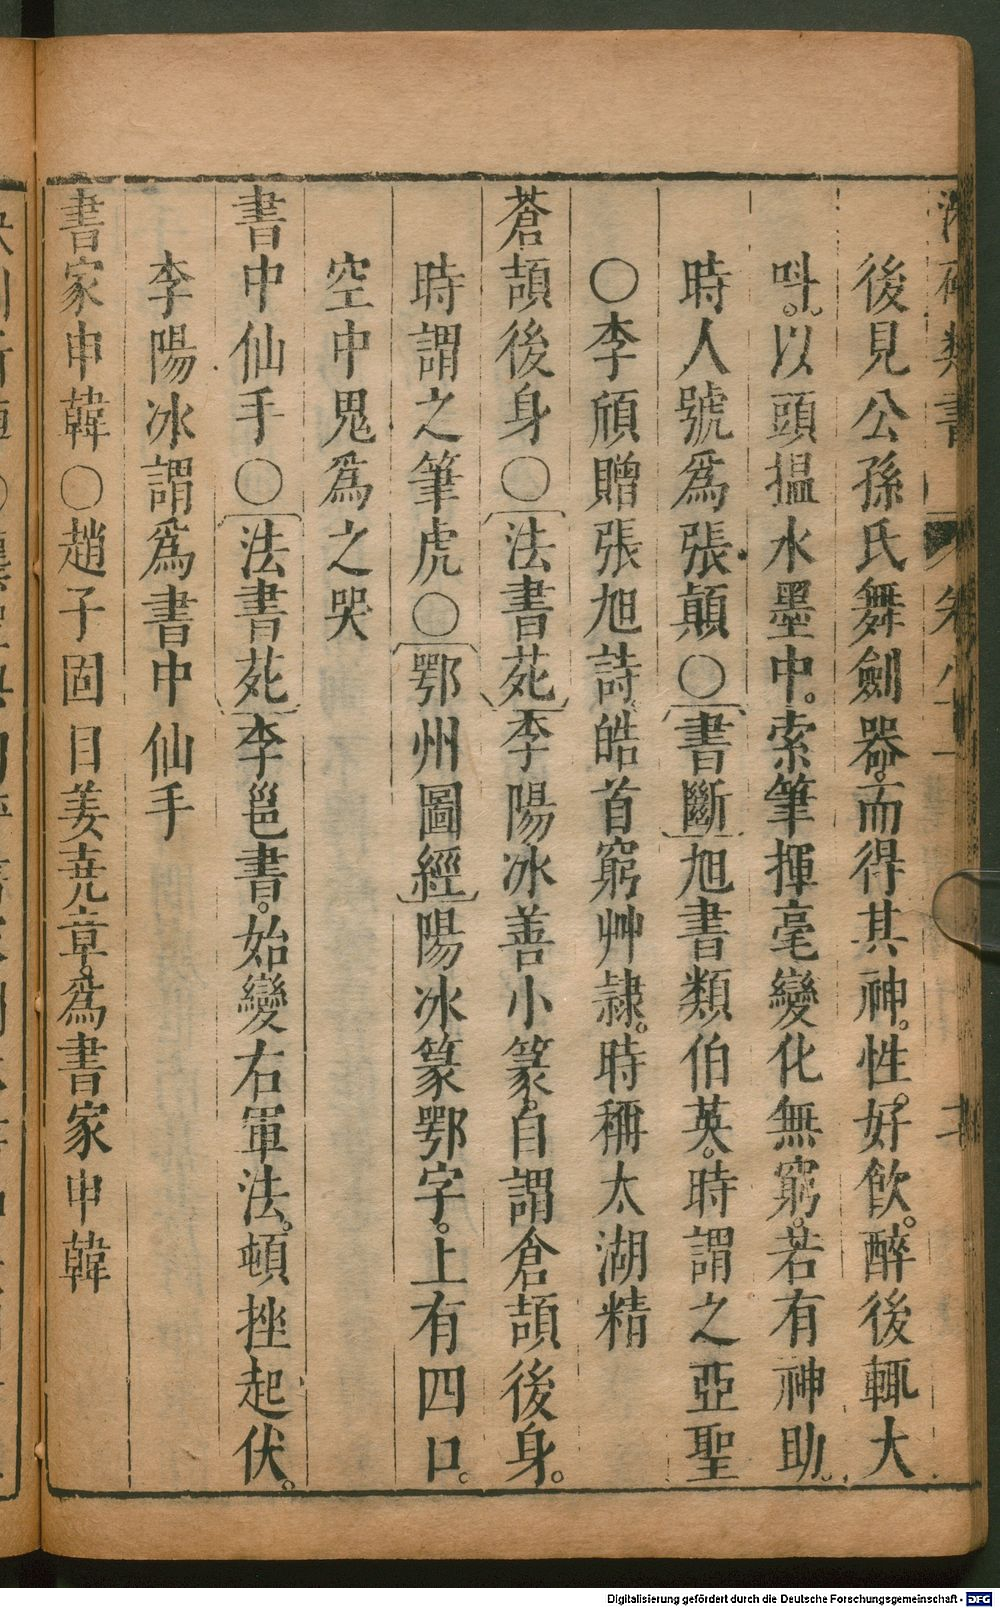 類書 卷八十一 二
後見公孫氏舞劍器。而得其神。性。好飲。醉後輒大
呌。以頭揾水墨中。索筆揮毫變化無窮。若有神助。
時人號爲張顛○書斷旭書類伯英。時謂之亞聖
○李頎贈張旭詩皓首窮艸隷。時稱太湖精
蒼頡後身○法書苑李陽冰善小篆。自謂倉頡後身。
時謂之筆虎○鄂州圖經陽冰篆鄂字。上有四口。
空中鬼爲之哭
書中仙手○法書苑李邕書。始變右軍法。頓挫起伏。
李陽冰謂爲書中仙手
書家申韓○趙子固目姜尭章。爲書家申韓
Digitalisierung gefördert durch die Deutsche Forschungsgemeinschaft - DFG